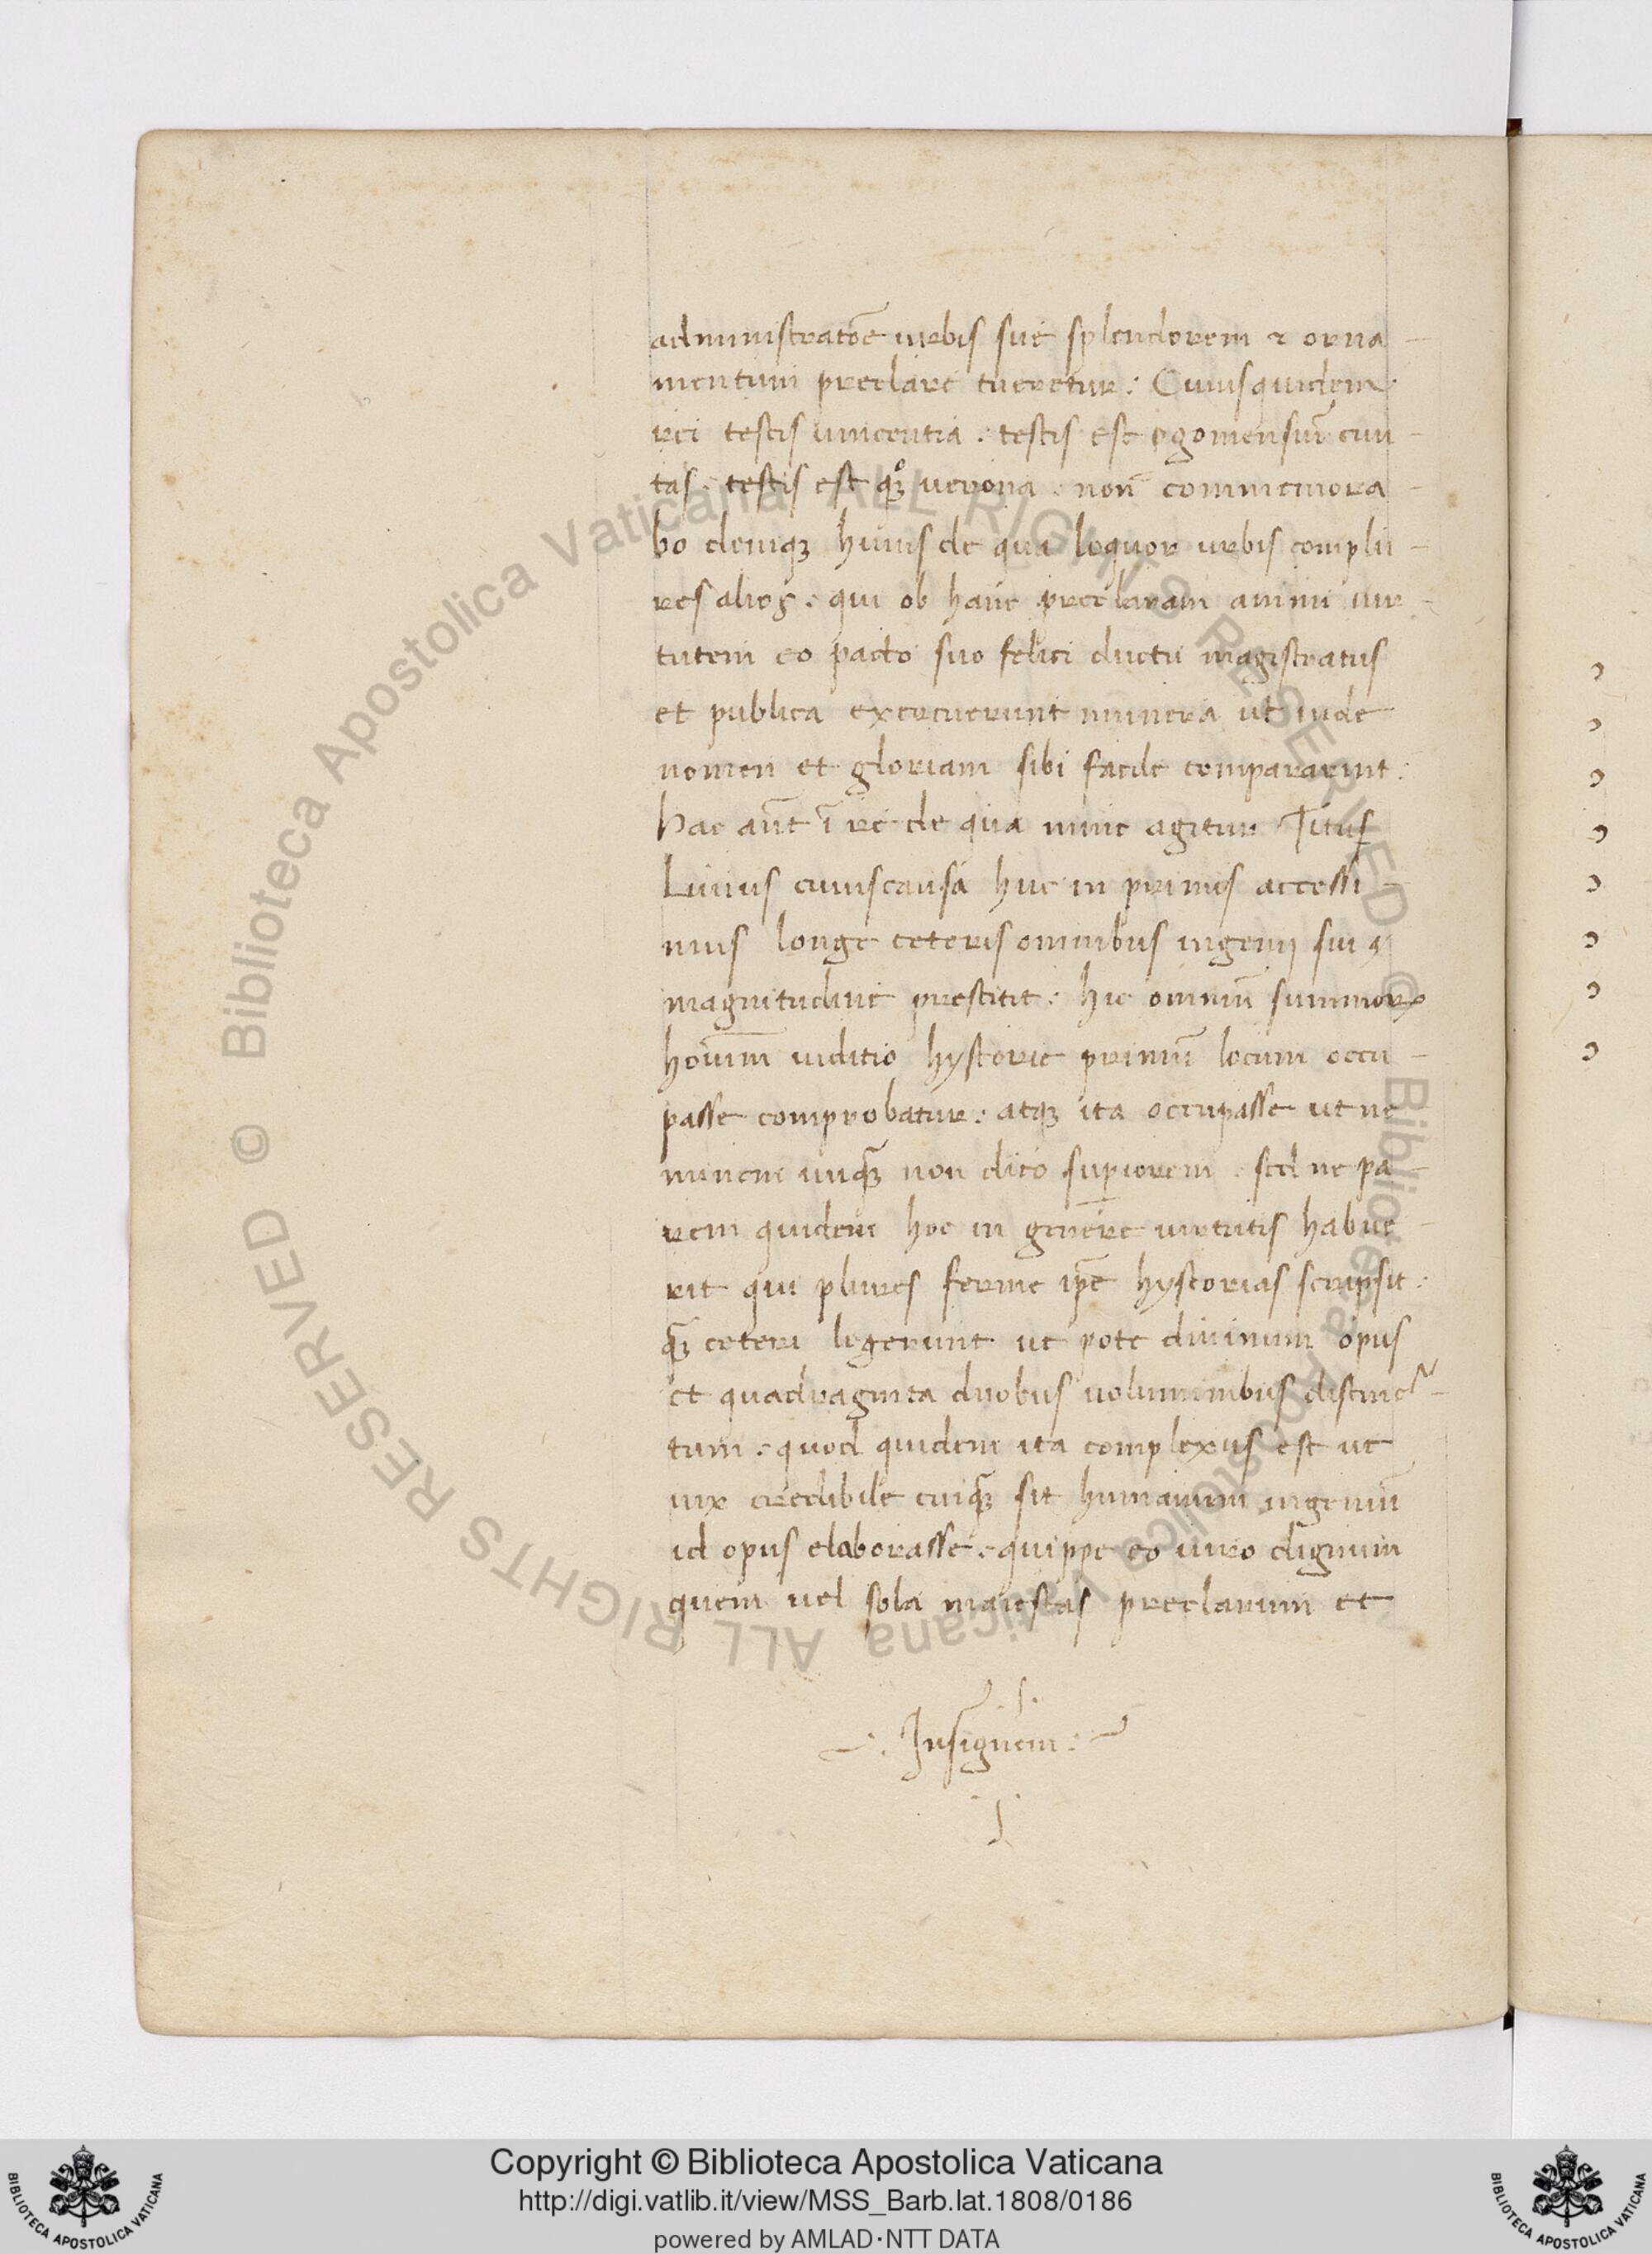 administratōe urbis sue splendorem ⁊ orna-
mentum preclare tueretur: Cuius quidem
rei testis vincentia. testis est ogomensiū cui-
tas. testis est qꝫ verona. non commemora-
bo deniqꝫ huius de qua loquor urbis complu-
res alios. qui ob hanc preclaram animi uir-
tutem eo pacto suo felici ductu magistratus
et publica exercuerunt munera ut inde
nomen et gloriam sibi facile compararint:
Hac aūt ī re de qua nunc agitur Titus
Liuius cuius causa huc in primis accessi-
mus longe ceteris omnibus ingenij sui
magnitudine prestitit: hic omniū summoꝝ
hoīum iuditio hystorie primū locum occu-
passe comprobatur: atqꝫ ita occupasse ut ne-
minem unqꝫ̄ non dico supiorem. sed ne pa-
rem quidem hoc in genere uirtutis habue-
rit qui plures ferme ip̄e hystorias scripsit:
qꝫ̄ ceteri legerunt ut pote diuinum opus
et quadraginta duobus uoluminibus distinc-
tum. quod quidem ita complexus est ut
uix credibile cuiqꝫ̄ sit humanum ingeniū
id opus elaborasse. quippe eo uiro dignum
quem uel sola maiestas preclarum et
Insignem.
Copyright © Biblioteca Apostolica Vaticana
http://digi.vatlib.it/view/MSS_Barb.lat.1808/0186
powered by AMLAD·NTT DATA
BIBLIOTECA APOSTOLICA VATICANA
BIBLIOTECA APOSTOLICA VATICANA
© Biblioteca Apostolica Vaticana ALL RIGHTS RESERVED
© Biblioteca Apostolica Vaticana ALL RIGHTS RESERVED